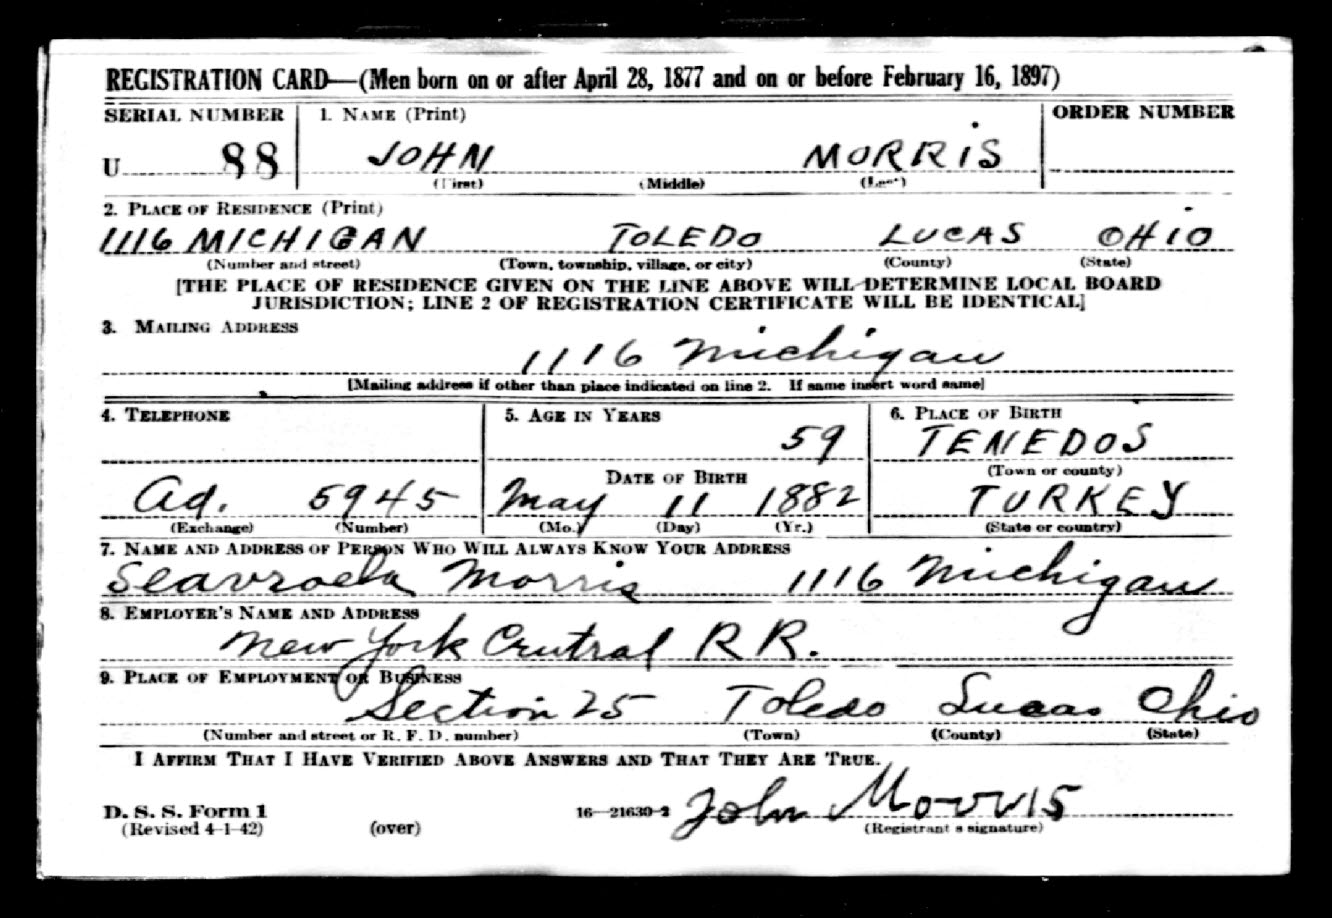 REGISTRATION CARD—(Men born on or after April 28, 1877 and on or before February 16, 1897)
SERIAL NUMBER 1. NAME (Print) ORDER NUMBER
U 88 JOHN MORRIS
(First) (Middle) (Last)
2. PLACE OF RESIDENCE (Print)
1116 MICHIGAN TOLEDO LUCAS OHIO
(Number and street) (Town, township, village, or city) (County) (State)
[THE PLACE OF RESIDENCE GIVEN ON THE LINE ABOVE WILL DETERMINE LOCAL BOARD
JURISDICTION; LINE 2 OF REGISTRATION CERTIFICATE WILL BE IDENTICAL]
3. MAILING ADDRESS
1116 Michigan
[Mailing address if other than place indicated on line 2. If same insert word same]
4. TELEPHONE 5. AGE IN YEARS 6. PLACE OF BIRTH
59 TENEDOS
DATE OF BIRTH (Town or county)
Ad. 5945 May 11 1882 TURKEY
(Exchange) (Number) (Mo.) (Day) (Yr.) (State or country)
7. NAME AND ADDRESS OF PERSON WHO WILL ALWAYS KNOW YOUR ADDRESS
Morris 1116 Michigan
8. EMPLOYER'S NAME AND ADDRESS
New York Central R R.
9. PLACE OF EMPLOYMENT OR BUSINESS
Section 25 Toledo Lucas Ohio
(Number and street or R. F. D. number) (Town) (County) (State)
I AFFIRM THAT I HAVE VERIFIED ABOVE ANSWERS AND THAT THEY ARE TRUE.
D. S. S. Form 1 16—21630-2 John Morris
(Revised 4-1-42) (over) (Registrant's signature)